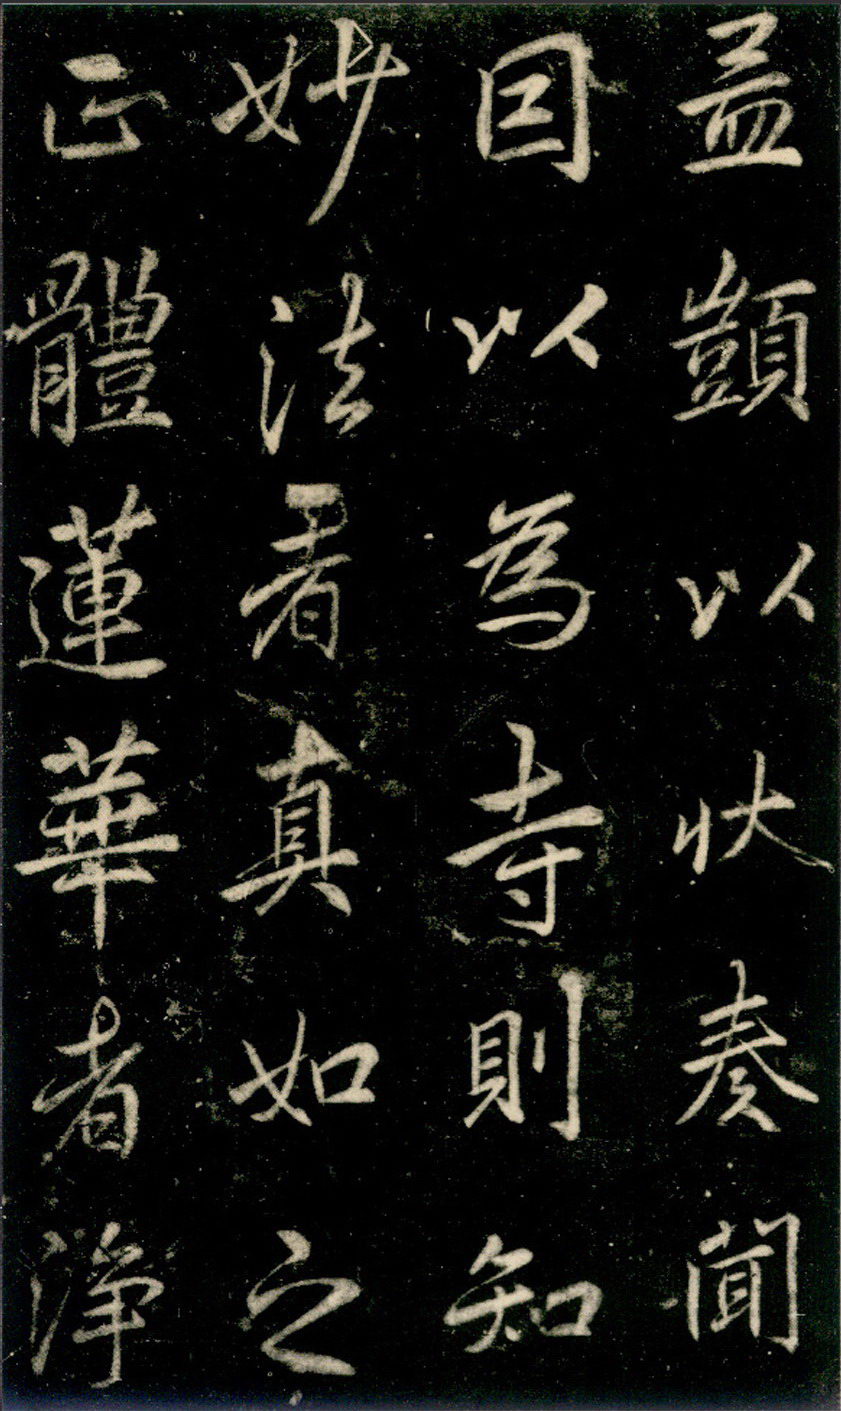 盖顗以状奏聞
因以為寺則知
妙法者真如之
正體蓮華者淨